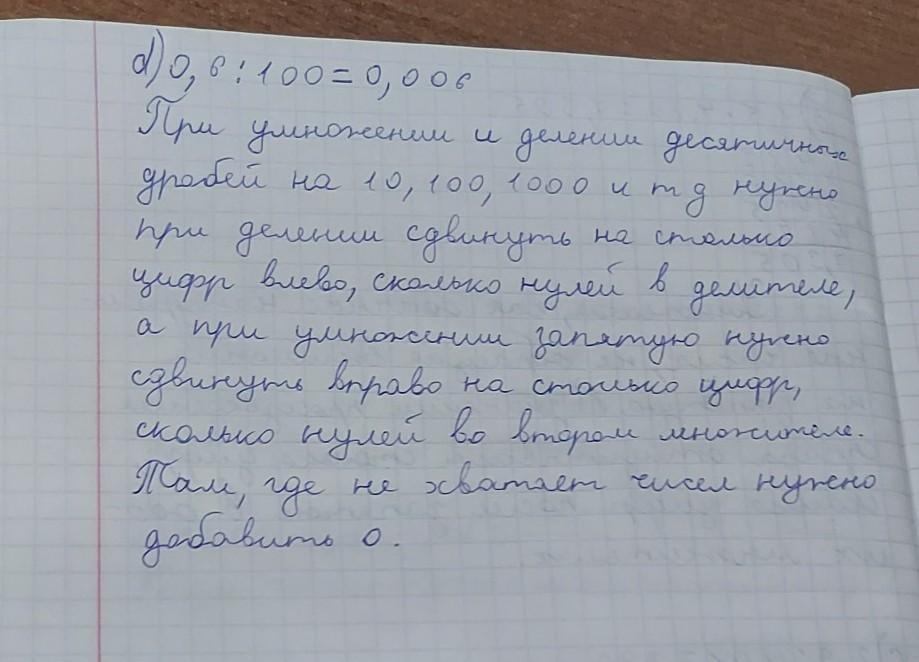 d) 0,6:100=0,006
При умножении и делении десятичных
дробей на 10, 100, 1000 и т д нужно
при делении сдвинуть на столько
цифр влево, сколько нулей в делителе,
а при умножении запятую нужно
сдвинуть вправо на столько цифр,
сколько нулей во втором множителе.
Там, где не хватает чисел нужно
добавить 0.